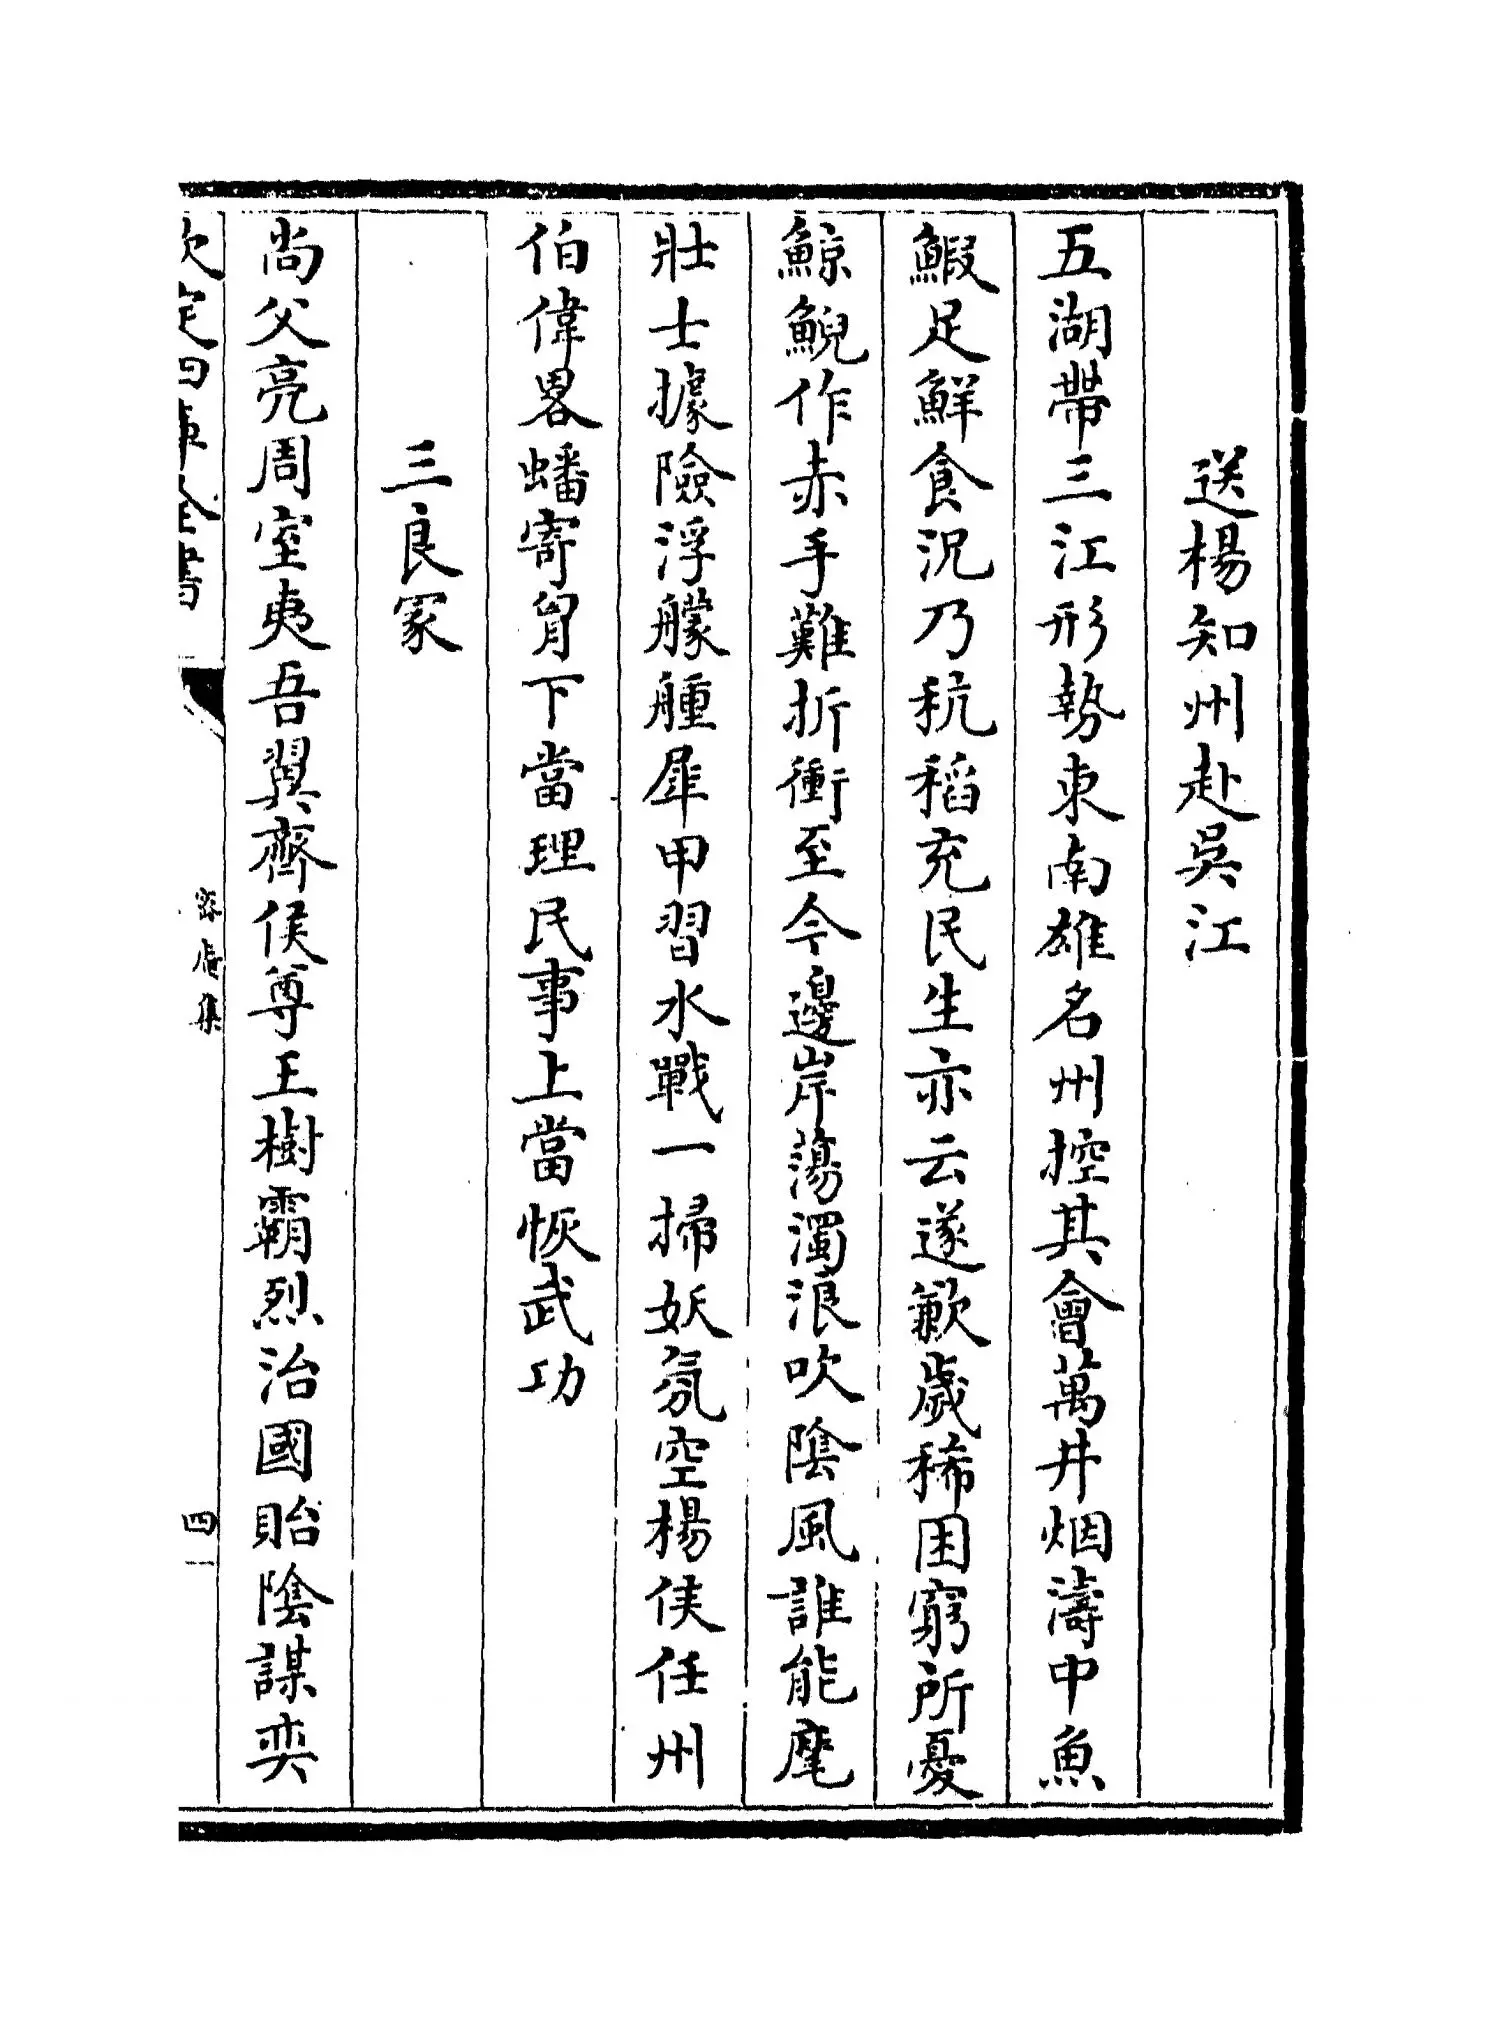 送楊知州赴吳江
五湖帶三江形勢東南雄名州控其會萬井烟濤中魚
鰕足鮮食況乃秔稻充民生亦云遂歉歲稀困窮所憂
鯨鯢作赤手難折衝至今邊岸蕩濁浪吹陰風誰能麾
壯士據險浮艨艟犀甲習水戰一掃妖氛空楊侯任州
伯偉畧蟠寄胷下當理民事上當恢武功
三良冢
尚父亮周室夷吾翼齊侯尊王樹霸烈治國貽陰謀奕
欽定四庫全書
容菴集
四